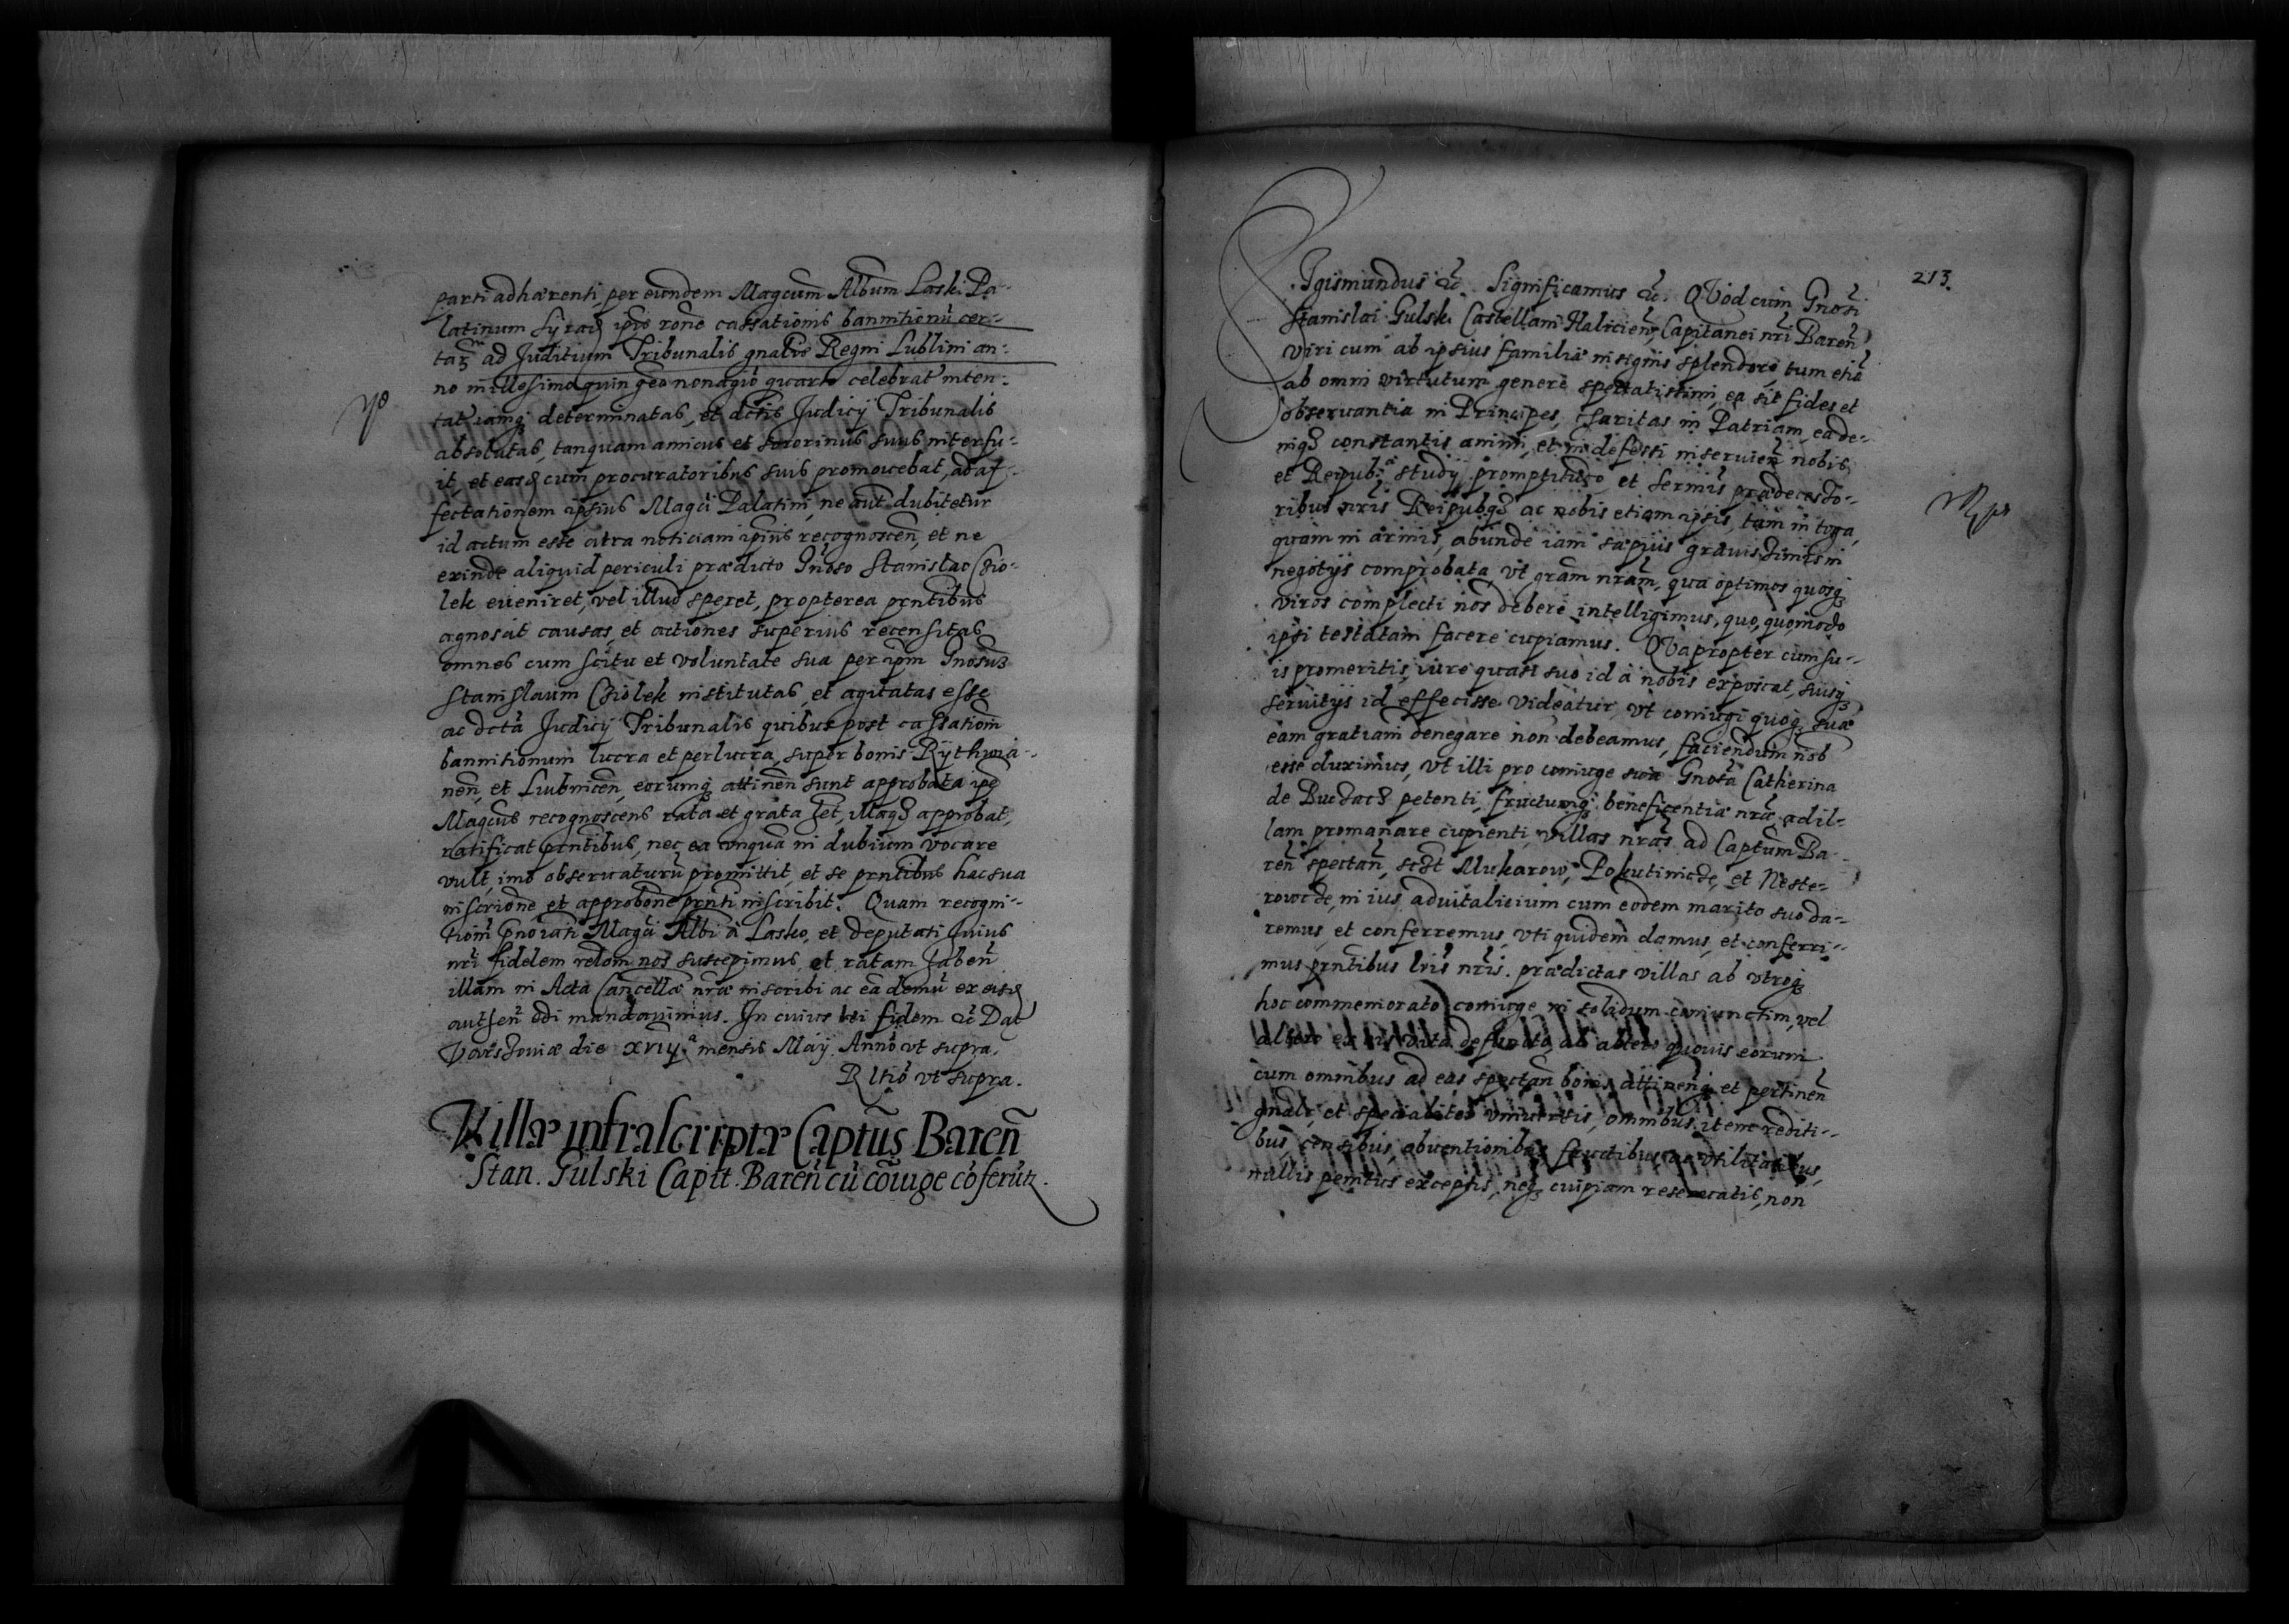 parti adhærenti, per eundem Magcum Album Laski Pa-
latinum Syrad ipso rone cassationis bannitionū cer-
tarz ad Juditium Tribunalis gnalis Regni Lublini an:
no millesimo quin geo nonagiō quarto celebrat inten:
determinatas, et dctis Judicÿ Tribunalis
absolutas, tanquam amicus et sororinus suus interfu-
it, et easd cum procuratoribus suis promovebat, ad af-
fectationem ipsius Magci Palatini, ne aut dubitetur
id actum esse citra noticiam ipius recognoscen, et ne
exinde aliquid periculi prædicto Gnoso Stanislao Czio-
lek eveniret, vel illud speret, propterea prntibus
agnoscit causas, et actiones superius recensitas
omnes cum scitu et voluntate sua per ipm Gnosum
Stanislaum Cziolek institutas, et agitatas esse
ac dctā Judicÿ Tribunalis quibus post cassationē
bannitionum lucra et perlucra, super bonis Rÿthwia-
nen, et Lubnicen, eorumq attinen sunt approbata ipe
Magcus recognoscens rata et grata het, illaq approbat,
ratificat prntibus, nec ea unquā in dubium vocare
vult, imo observaturū promittit, et se prntibus hac sua
inscrione et approbone prnti inscribit. Quam recogni-
tionē Magci Albi a Lasko, et deputati huius
nri fidelem relōm nos suscepimus, et ratam haben
illam in Acta Cancellæ nræ inscribi ac eā demū ex eisd
authen edi mandavimus. In cuius rei fidem &c Dat
Varssoviæ die XVIIJ.a mensis Maÿ. Anno vt supra.
Rltio vt supra.
Villæ infrascriptæ Captus Baren
Stan. Gulski Capit. Baren cū coiuge cōferūtr.
213.
Sigismundus &c. Significamus &c. Quod cum Gnosi
Stanislai Gulski Castellani Halicien, Capitanei nri Baren
viri cum ab ipsius familiæ insignis splendore, tum etiā
ab omni virtutum genere spectatissimi, ea sit fides et
observantia in Principes, charitas in Patriam, ea de-
niq constantis animi, et indefessi inservien nobis
et Reipub. studÿ promptitudo, et Sermis prædecesso-
ribus nris Reipubq ac nobis etiam ipsis, tam in toga,
quam in armis, abunde iam sæpius gravissimis in
negotÿs comprobata, vt gram nram, qua optimos quosq
viros complecti nos debere intelligimus, quo, quomodo
ipsi testatam facere cupiamus. Quapropter cum su-
is promeritis, iure quasi suo id à nobis exposcat, suisq
servitÿs id effecisse videatur, vt coniugi quoq suæ
eam gratiam denegare non debeamus, faciendum nob
esse duximus, vt illi pro coniuge sua Gnosa Catherina
de Buczacz petenti, fructumq beneficentiæ nræ ad il-
lam promanare cupienti, villas nras ad Captum Ba-
ren spectan, sczt Mukarow, Pokutincze, et Neste-
rowcze, in ius advitalicium cum eodem marito suo da-
remus, et conferremus, vti quidem damus, et conferri-
mus prntibus lris nris. prædictas villas ab vtroq
hoc commemorato coniuge in solidum coniunctim, vel
altero ex his vita defuncto, ab altero quovis eorum
cum omnibus ad eas spectan bonis attinenq et pertinen
gnalr, et specialiter vniversis, omnibus item rediti-
bus, censibus, obventionibus fructibus, ac vtilitatibus,
nullis penitus exceptis, neq cuipiam reservatis, non